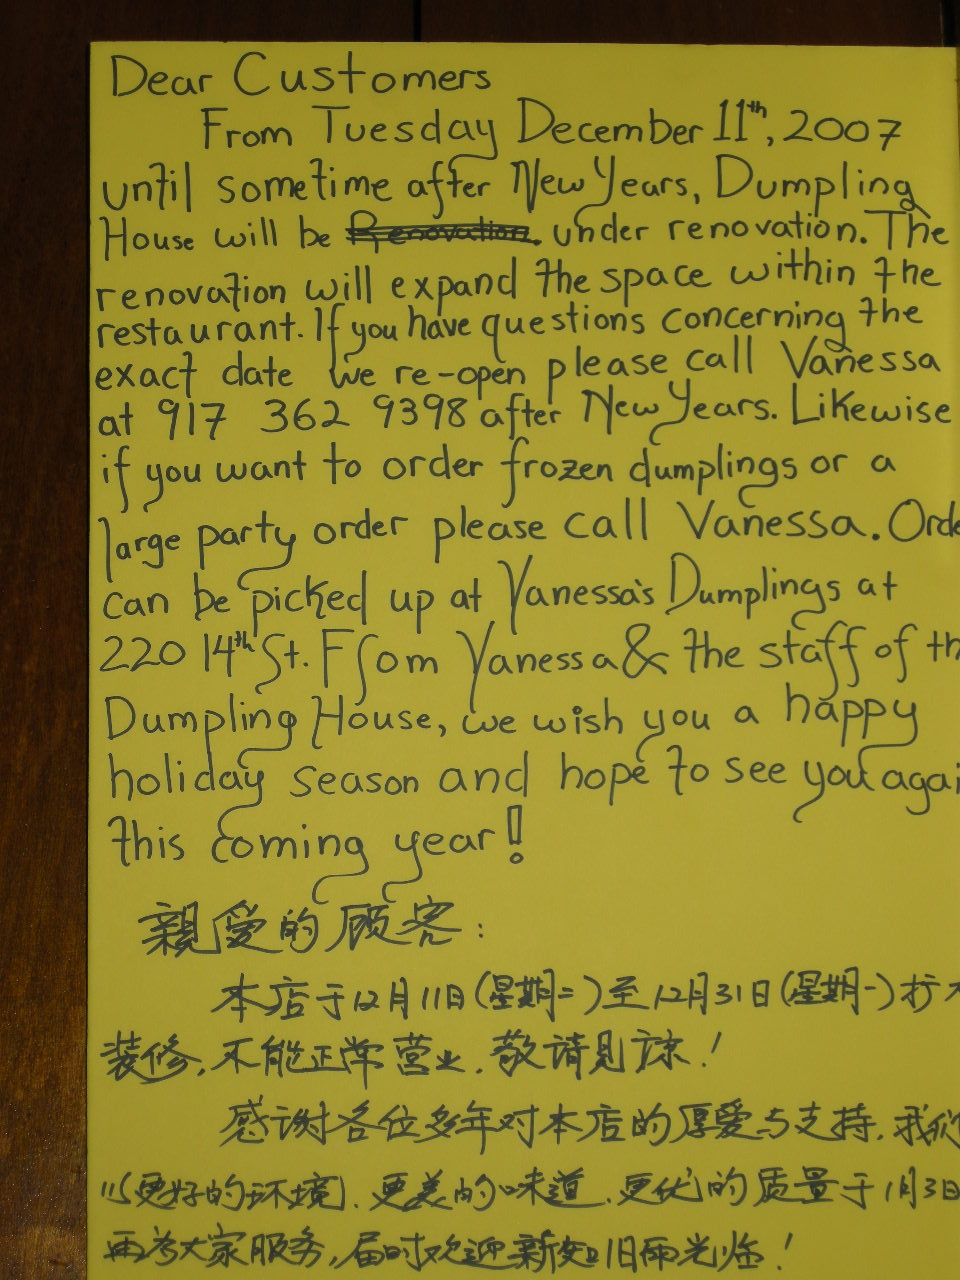 Dear Customers
From Tuesday December 11th, 2007
until sometime after New Years, Dumpling
House will be Renovation. under renovation. The
renovation will expand the space within the
restaurant. If you have questions concerning the
exact date we re-open please call Vanessa
at 917 362 9398 after New Years. Likewise
if you want to order frozen dumplings or a
large party order please call Vanessa. Orde
can be picked up at Vanessa's Dumplings at
220 14th St. From Vanessa & the staff of th
Dumpling House, we wish you a happy
holiday season and hope to see you agai
this coming year!
親爱的顾客:
本店于12月11日(星期二)至12月31日(星期一)扩大
装修,不能正常营业.敬请见谅!
感谢各位多年对本店的厚爱与支持.我们
以更好的环境.更美的味道.更优的质量于1月3日
再为大家服务,届时欢迎新知旧雨光临!